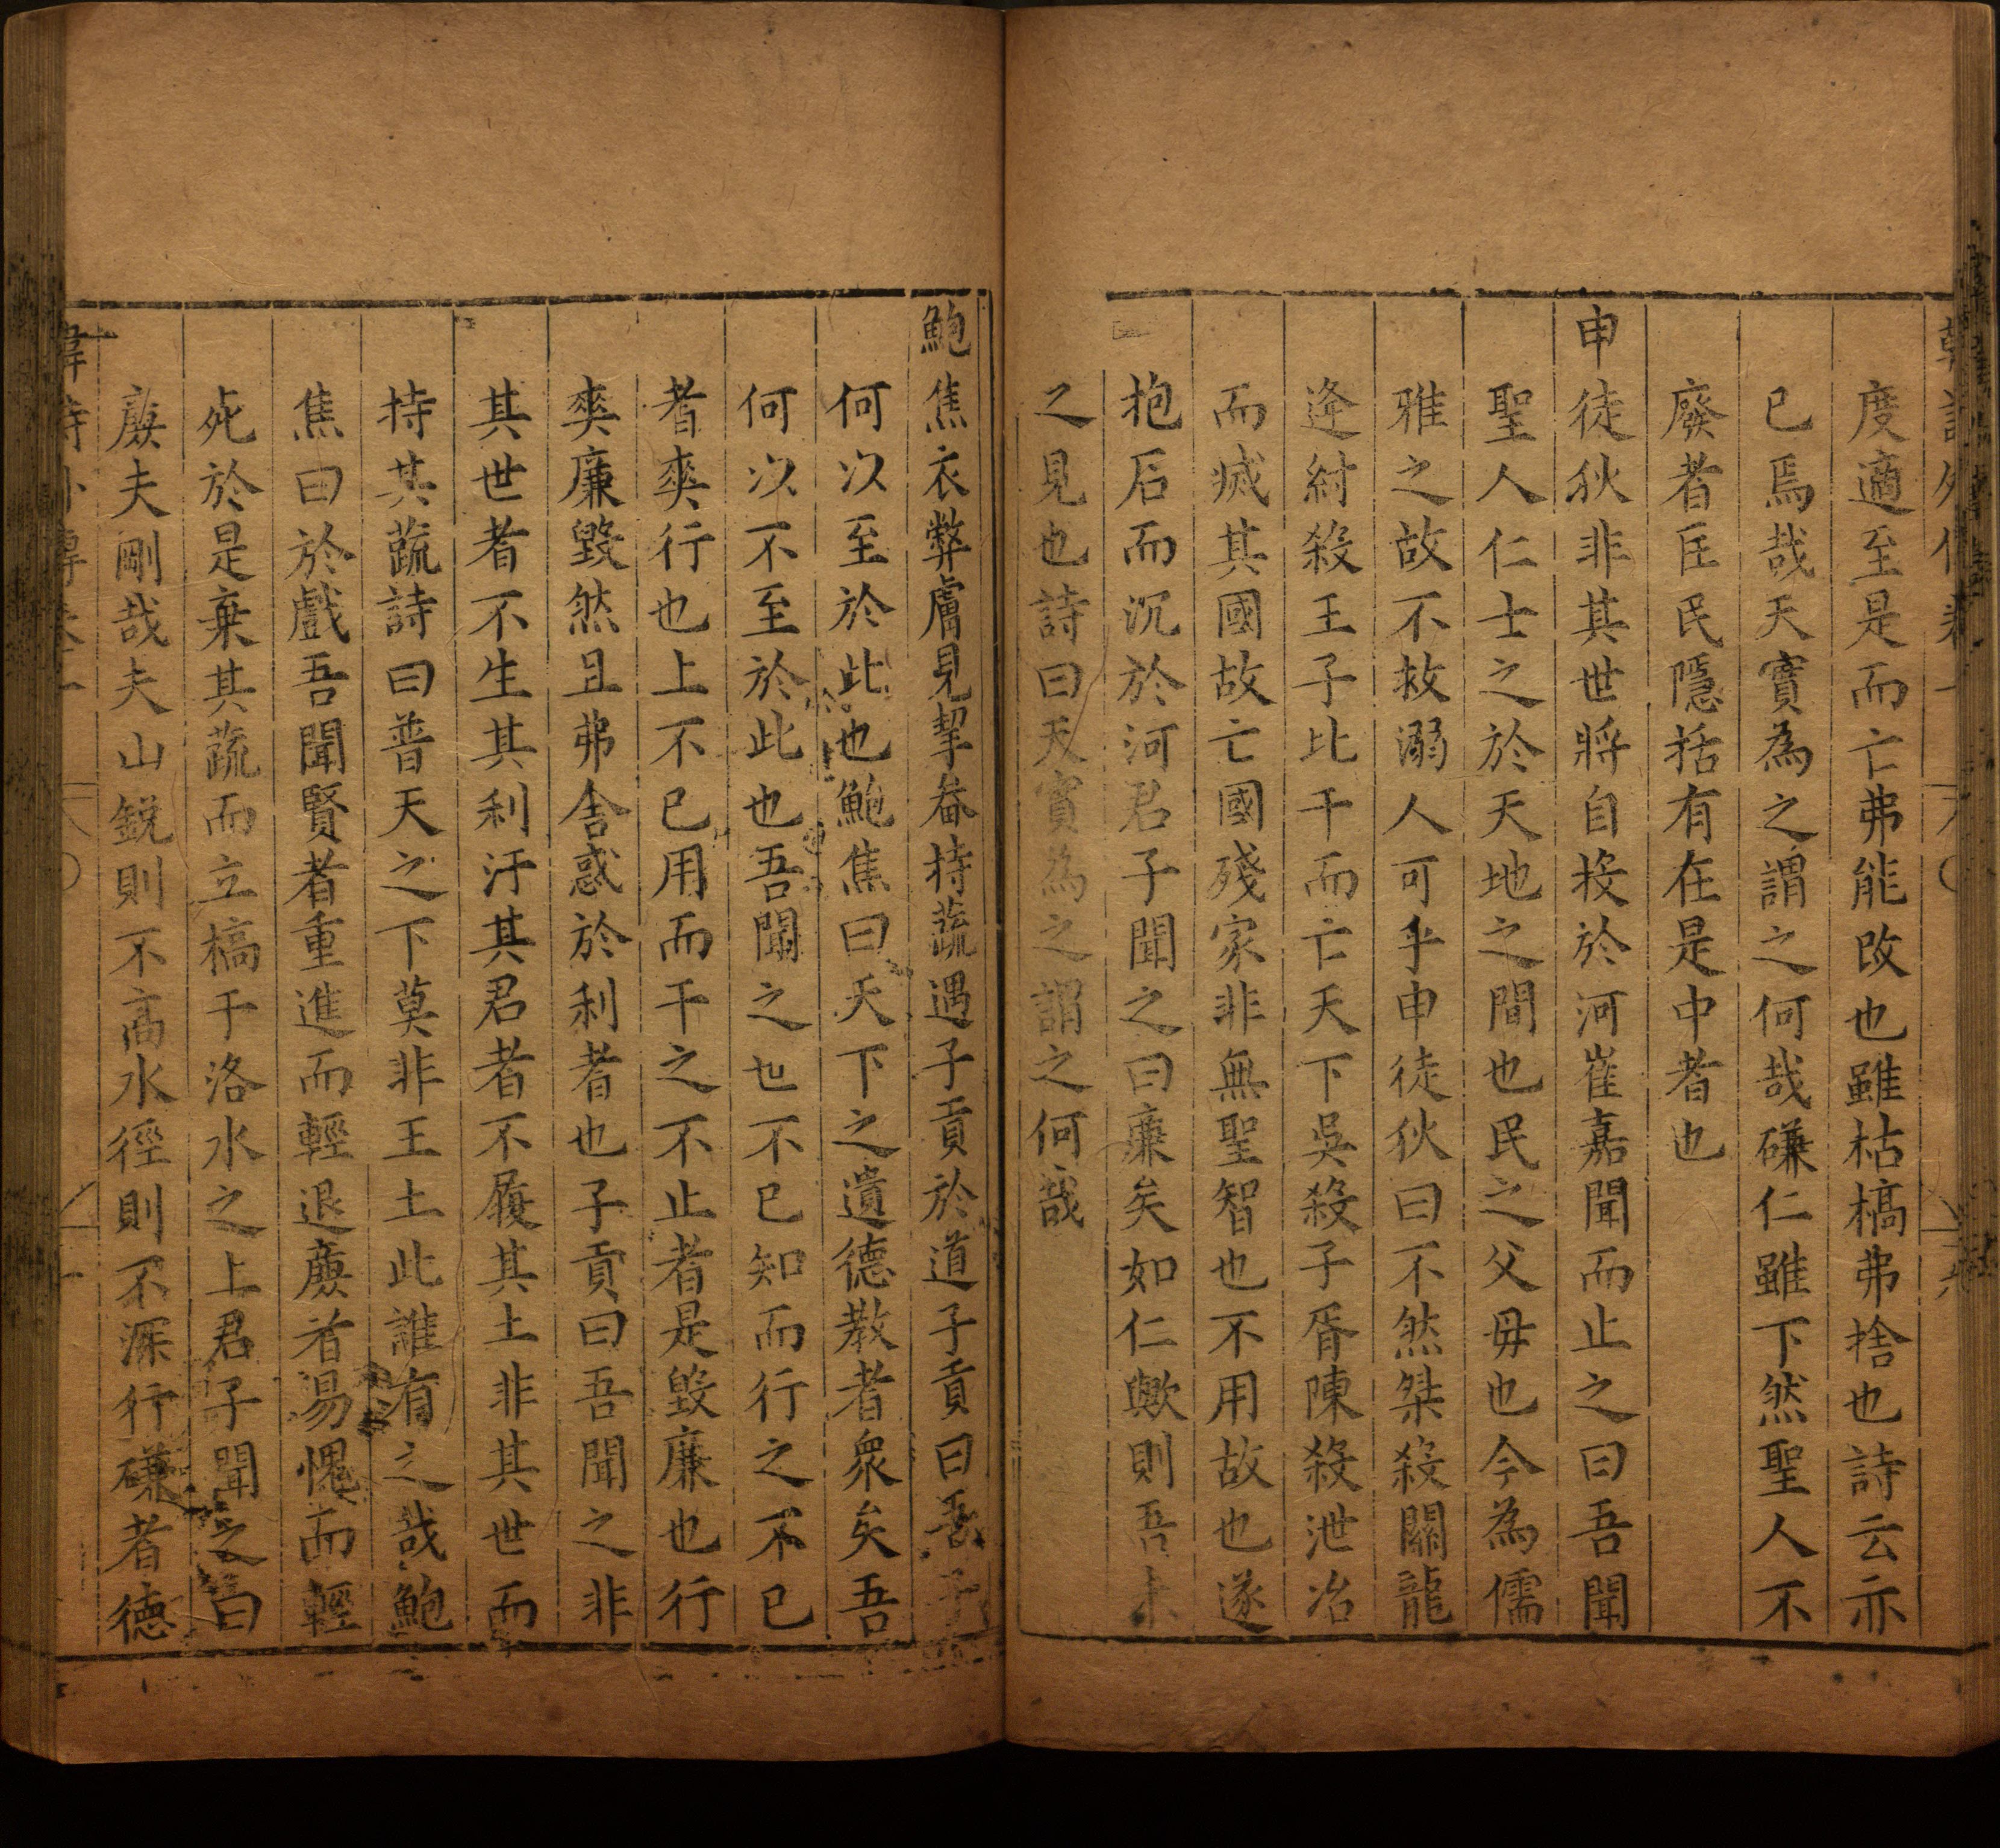 度適至是而亡弗能改也雖枯槁弗捨也詩云亦
已焉哉天實為之謂之何哉磏仁雖下然聖人不
廢者匡民隱括有在是中者也
申徒狄非其世將自投於河崔嘉聞而止之曰吾聞
聖人仁士之於天地之間也民之父毋也今為儒
雅之故不救溺人可乎申徒狄曰不然桀殺關龍
逄紂殺王子比干而亡天下吳殺子胥陳殺泄冶
而烕其國故亡國殘家非無聖智也不用故也遂
抱石而沉於河君子聞之曰廉矣如仁歟則吾未
之見也詩曰天實為之謂之何哉
鮑焦衣弊膚見挈畚持蔬遇子貢於道子貢曰吾子
何以至於此也鮑焦曰天下之遺德教者衆矣吾
何以不至於此也吾聞之也不已知而行之不已
者爽行也上不已用而干之不止者是毀廉也行
爽廉毀然且弗舍惑於利者也子貢曰吾聞之非
其世者不生其利汙其君者不履其土非其世而
持其蔬詩曰普天之下莫非王土此誰有之哉鮑
焦曰於戲吾聞賢者重進而輕退廉者易愧而輕
死於是棄其蔬而立槁于洛水之上君子聞之曰
廉夫剛哉夫山銳則不高水徑則不深行磏者德